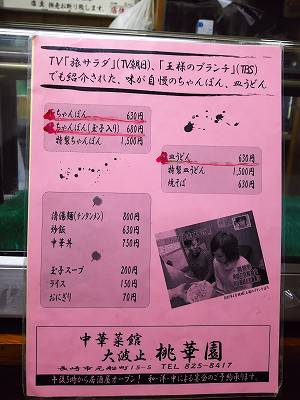 TV「旅サラダ」(TV朝日)、「王様のブランチ」(TBS)
でも紹介された、味が自慢のちゃんぽん、皿うどん
ちゃんぽん 630円
ちゃんぽん(玉子入り) 680円
特製ちゃんぽん 1,500円
皿うどん 630円
特製皿うどん 1,500円
焼そば 630円
清湯麺(チンタンメン) 800円
炒飯 630円
中華丼 750円
玉子スープ 200円
ライス 150円
おにぎり 70円
中華菜館
大波止 桃華園
長崎市元船町15-5 TEL 825-8417
午後5時から居酒屋オープン! 和・洋・中による宴会のご予約承ります。